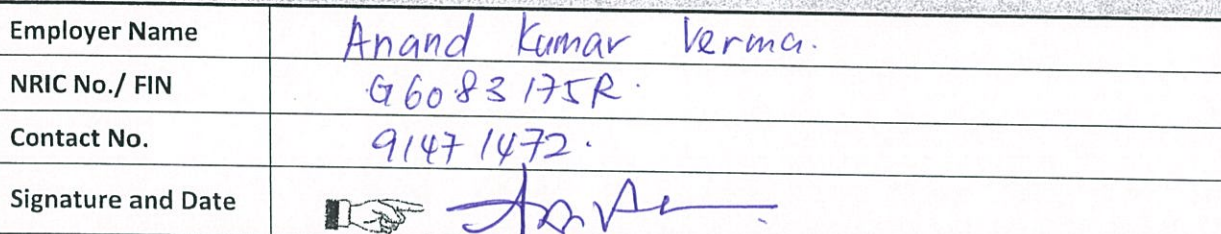 Employer Name Anand Kumar Verma.
NRIC No./ FIN G6083175R.
Contact No. 91471472.
Signature and Date